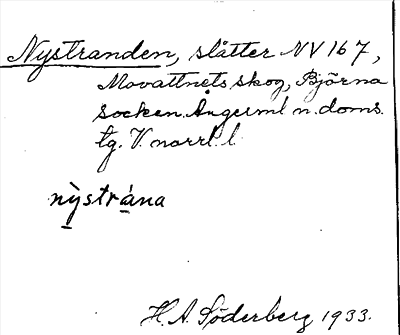 Nystranden, slåtter NV 167,
Movattnets skog, Björna
socken. Ångerml. n. doms.
tg. V. norrl. l.
nỳstràna
H. A. Söderberg 1933.